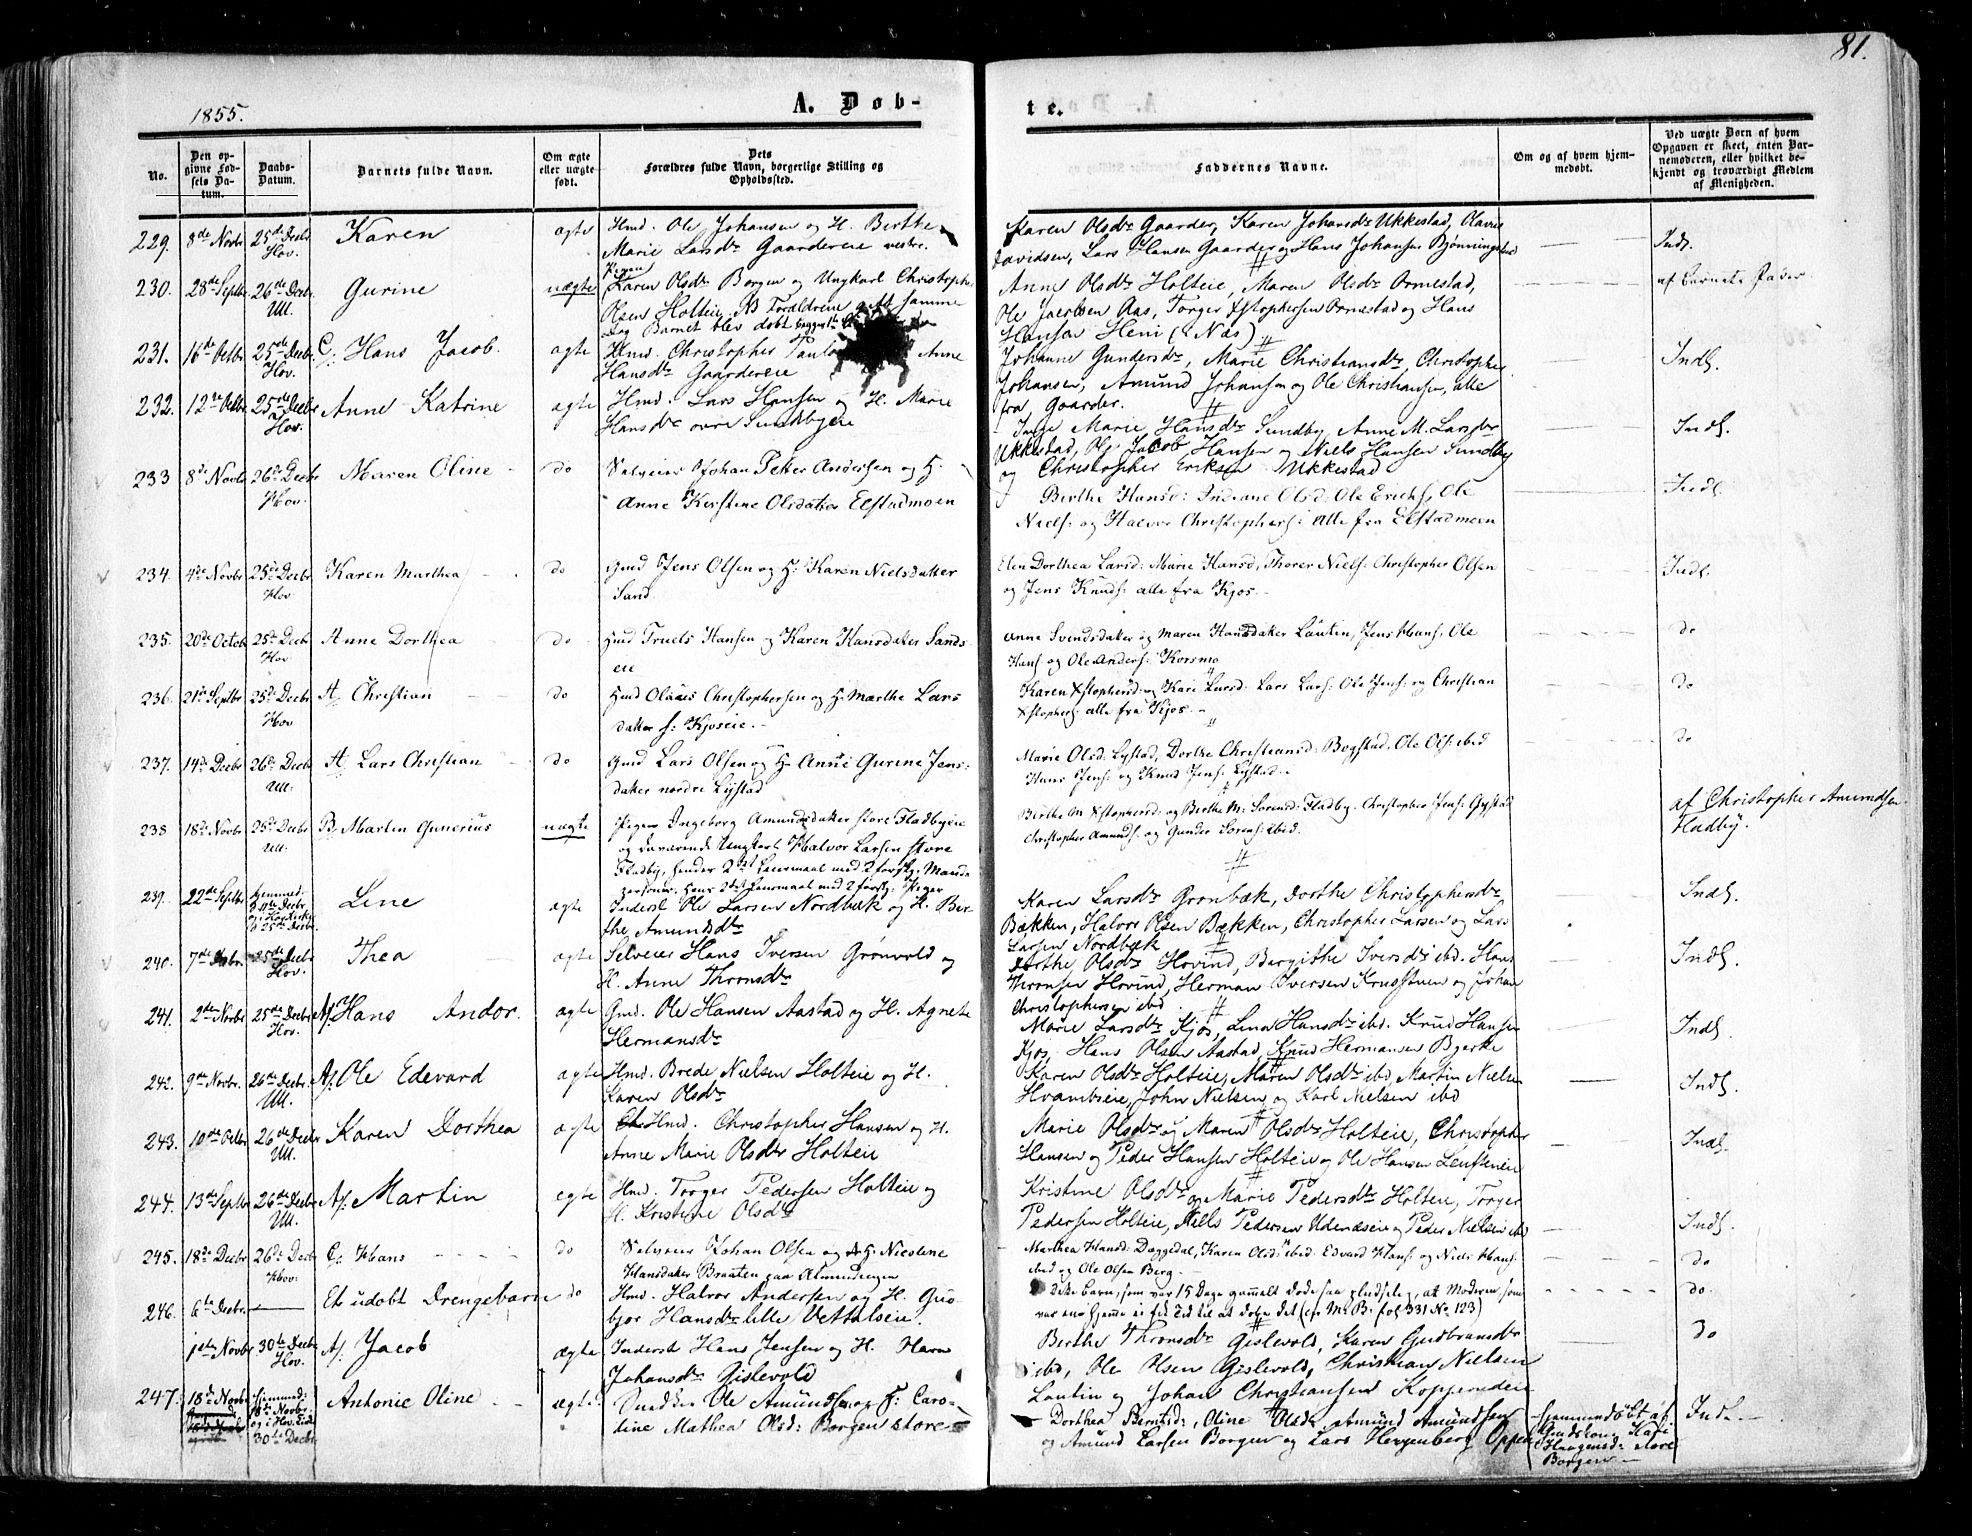 81.
1855.
A. Døb-
te.
No.
Den op-
givne Fød-
sels Da-
tum.
Daabs-
Datum.
Barnets fulde Navn.
Om ægte
eller uægte
født.
Dets
Forældres fulde Navn, borgerlige Stilling og
Opholdssted.
Faddernes Navne.
Om og af hvem hjem-
medøbt.
Ved uægte Børn af hvem
Opgaven er skeet, enten Bar-
nemoderen, eller hvilket be-
kjendt og troværdigt Medlem
af Menigheden.
229. 8de Novbr 25de Decbr Karen ægte Hmd. Ole Johansen og H. Berthe Karen Olsdr Gaarder, Karen Johansdr Ukkestad, Olaves
Hov. Marie Larsdr Gaardereie vestre. Davidsen, Lars Hansen Gaarder og Hans Johansen Bjønningstad Indb.
230. 28de Septbr 26de Decbr Gurine uægte Pigen Karen Olsdr Borgen og Ungkarl Christopher Anne Olsdr Holteie, Maren Olsdr Ormestad, af Barnets Fader
Ull. Olsen Holteie, NB Forældrene gift samme Ole Jacobsen Aas, Torger Xstophersen Ormestad og Hans
Dag Barnet blev døbt Hansen Heni (i Næs)
231. 16de Octbr 25de Decbr C. Hans Jacob. ægte Hmd. Christopher Anne Johanne Gundersdr, Marie Christiansdr, Christopher Indb.
Hov. Hansdr Gaardereie Johansen, Amund Johansen og Ole Christiansen, alle
fra Gaarder.
232. 12te Octbr 25de Decbr Anne Katrine ægte Hmd. Lars Hansen og H. Marie Inge Marie Hansdr Sundby, Anne M. Larsdr Indb.
Hov. Hansdr øvre Sundbyeie Ukkestad, Ole Jacob Hansen og Niels Hansen Sundby
og Christopher Eriksen Ukkestad
233 8de Novbr 26de Decbr Maren Oline do Selveier Johan Peter Andersen og H. Berthe Hansd: Indiane Olsd: Ole Eriks, Ole Indb.
Hov Anne Kirstine Olsdatter Elstadmoen Niels: og Halvor Christophers: alle fra Elstadmoen
234. 4de Novbr 25de Decbr Karen Marthea do Gmd Jens Olsen og H: Karen Nielsdatter Elen Dorthea Larsd: Marie Hansd, Thorer Niels: Christopher Olsen Indb.
Hov Sand. og Jens Knuds: alle fra Kjos.
235. 20de Octob 25de Decbr Anne Dorthea do Hmd Truels Hansen og Karen Hansdatter Sands- Anne Svendsdatter og Maren Hansdatter Lautin, Jens Hans, Ole do
Hov eie Hans og Ole Anders: Korsmo
236. 21de Septbr 25de Decbr A. Christian do Hmd Olaves Christophersen og H: Marthe Lars Karen Xstophersd: og Kari Larsd: Lars Lars: Ole Jens: og Christian do
Hov datter s: Kjoseie. Xstophers: alle fra Kjos.
237. 14de Decbr 26de Decbr A. Lars Christian do Gmd Lars Olsen og H. Anne Gurine Jens- Marie Olsd: Lystad, Dorthe Christiansd: Bogstad, Ole Ols: ibid do
Ull: datter nordre Lystad Hans Jens: og Knud Jens: Lystad.
238 18de Novbr 25de Decbr B. Martin Gunerius uægte Pigen Ingeborg Amundsdatter store Fladbyeie Berthe M Xstophersd: og Berthe M: Sørensd: Fladby. Christopher Jens: Gystad af Christopher Amundsen
Ull: og Ungkarl Halvor Larsen store Christopher Amunds: og Gunder Sørens: ibid. Fladby.
Fladby, hendes 2det Leiermaal med 2 forskj. Mands
personer, hans 2det Leiermaal med 2 forskj: Piger
239. 22de Septbr hjemmed: Line ægte Inderst Ole Larsen Nordbæk og H. Ber- Karen Larsdr Grønbæk, Dorthe Christophersdr Indb.
25de Decbr the Amundsdr Bækken, Halvor Olsen Bækken, Christopher Larsen og Lars
Larsen Nordbæk
240. 7de Decbr 25de Decbr Thea ægte Selveier Hans Iversen Grønvold og Dorthe Olsdr Hovind, Bergithe Iversdr ibd. Hans Indb.
Hov. H. Anne Thronsdr Thronsen Hovind, Herman Iversen og Johan
Christophersen ibd
241. 2den Novbr 25de Decbr A. Hans Andor. ægte Gmd. Ole Hansen Aastad og H. Agnete Marie Larsdr Kjos, Lina Hansdr ibd. Knud Hansen Indb.
Hov. Hermansdr Kjos, Hans Olsen Aastad, Knud Hermansen Bjerke
242. 9de Novbr. 26de Decbr A. Ole Edevard ægte Hmd. Brede Nielsen Holteie og H. Karen Olsdr Holteie, Maren Olsdr ibd, Martin Nielsen Indb.
Ull. Karen Olsdr Hvambseie, John Nielsen og Karl Nielsen ibd
243. 10de Octbr 26de Decbr Karen Dorthea ægte Hmd. Christopher Hansen og H. Marie Olsdr og Maren Olsdr Holteie, Christopher Indb.
Ull. Anne Marie Olsdr Holteie Hansen og Peder Hansen Holteie og Ole Hansen
244. 13de Septbr 26de Decbr A. Martin ægte Hmd. Torger Pedersen Holteie og Kristine Olsdr og Marie Pedersdr Holteie, Torger
Ull. H. Kristine Olsdr Pedersen Holteie, Niels Pedersen Udenæseie og Peder Nielsen ibd Indb.
245. 18de Decbr 26de Decbr C. Hans do Selveier Johan Olsen og H: Nicoline Marthea Hansd: Daggedal, Karen Olsd: ibid: Edvard Hans: og Niels Hans: do
Hov: Hansdatter Braaten paa Almindingen ibid og Ole Olsen Berg.
246. 6te Decbr. Et udøbt Drengebarn do Hmd. Halvor Andersen og H. Gu- Dette Barn, som var 15 Dage gammelt døde saa pludselig, at Moderen som do.
bjør Hansdr lille Vettalseie. var ene hjemme ei fik Tid til at døbe det (cfr M. B. fol 331 No. 123)
1ste Novbr 30te Decbr A. Jacob ægte Inderst Hans Jensen og H. Maren Berthe Thronsdr Gislevold, Karen Gudbransdr Do
Hov. Johansdr Gislevold ibd, Ole Olsen Gislevold, Christian Nielsen
Lautin og Johan Christiansen Koppereie
247. 18de Novbr hjemmed: Antonie Oline ægte Snedker Ole Amundsen og H: Caro- Dorthea Berntsd:, Oline Olsd, Amund Amundsen hjemmedøbt af Indb.
18de Novbr line Mathea Olsd: Borgen store og Amund Larsen Borgen og Lars Hexeberg Oppen
og i Hov Kirke Haagensd: store
30te Decbr Borgen